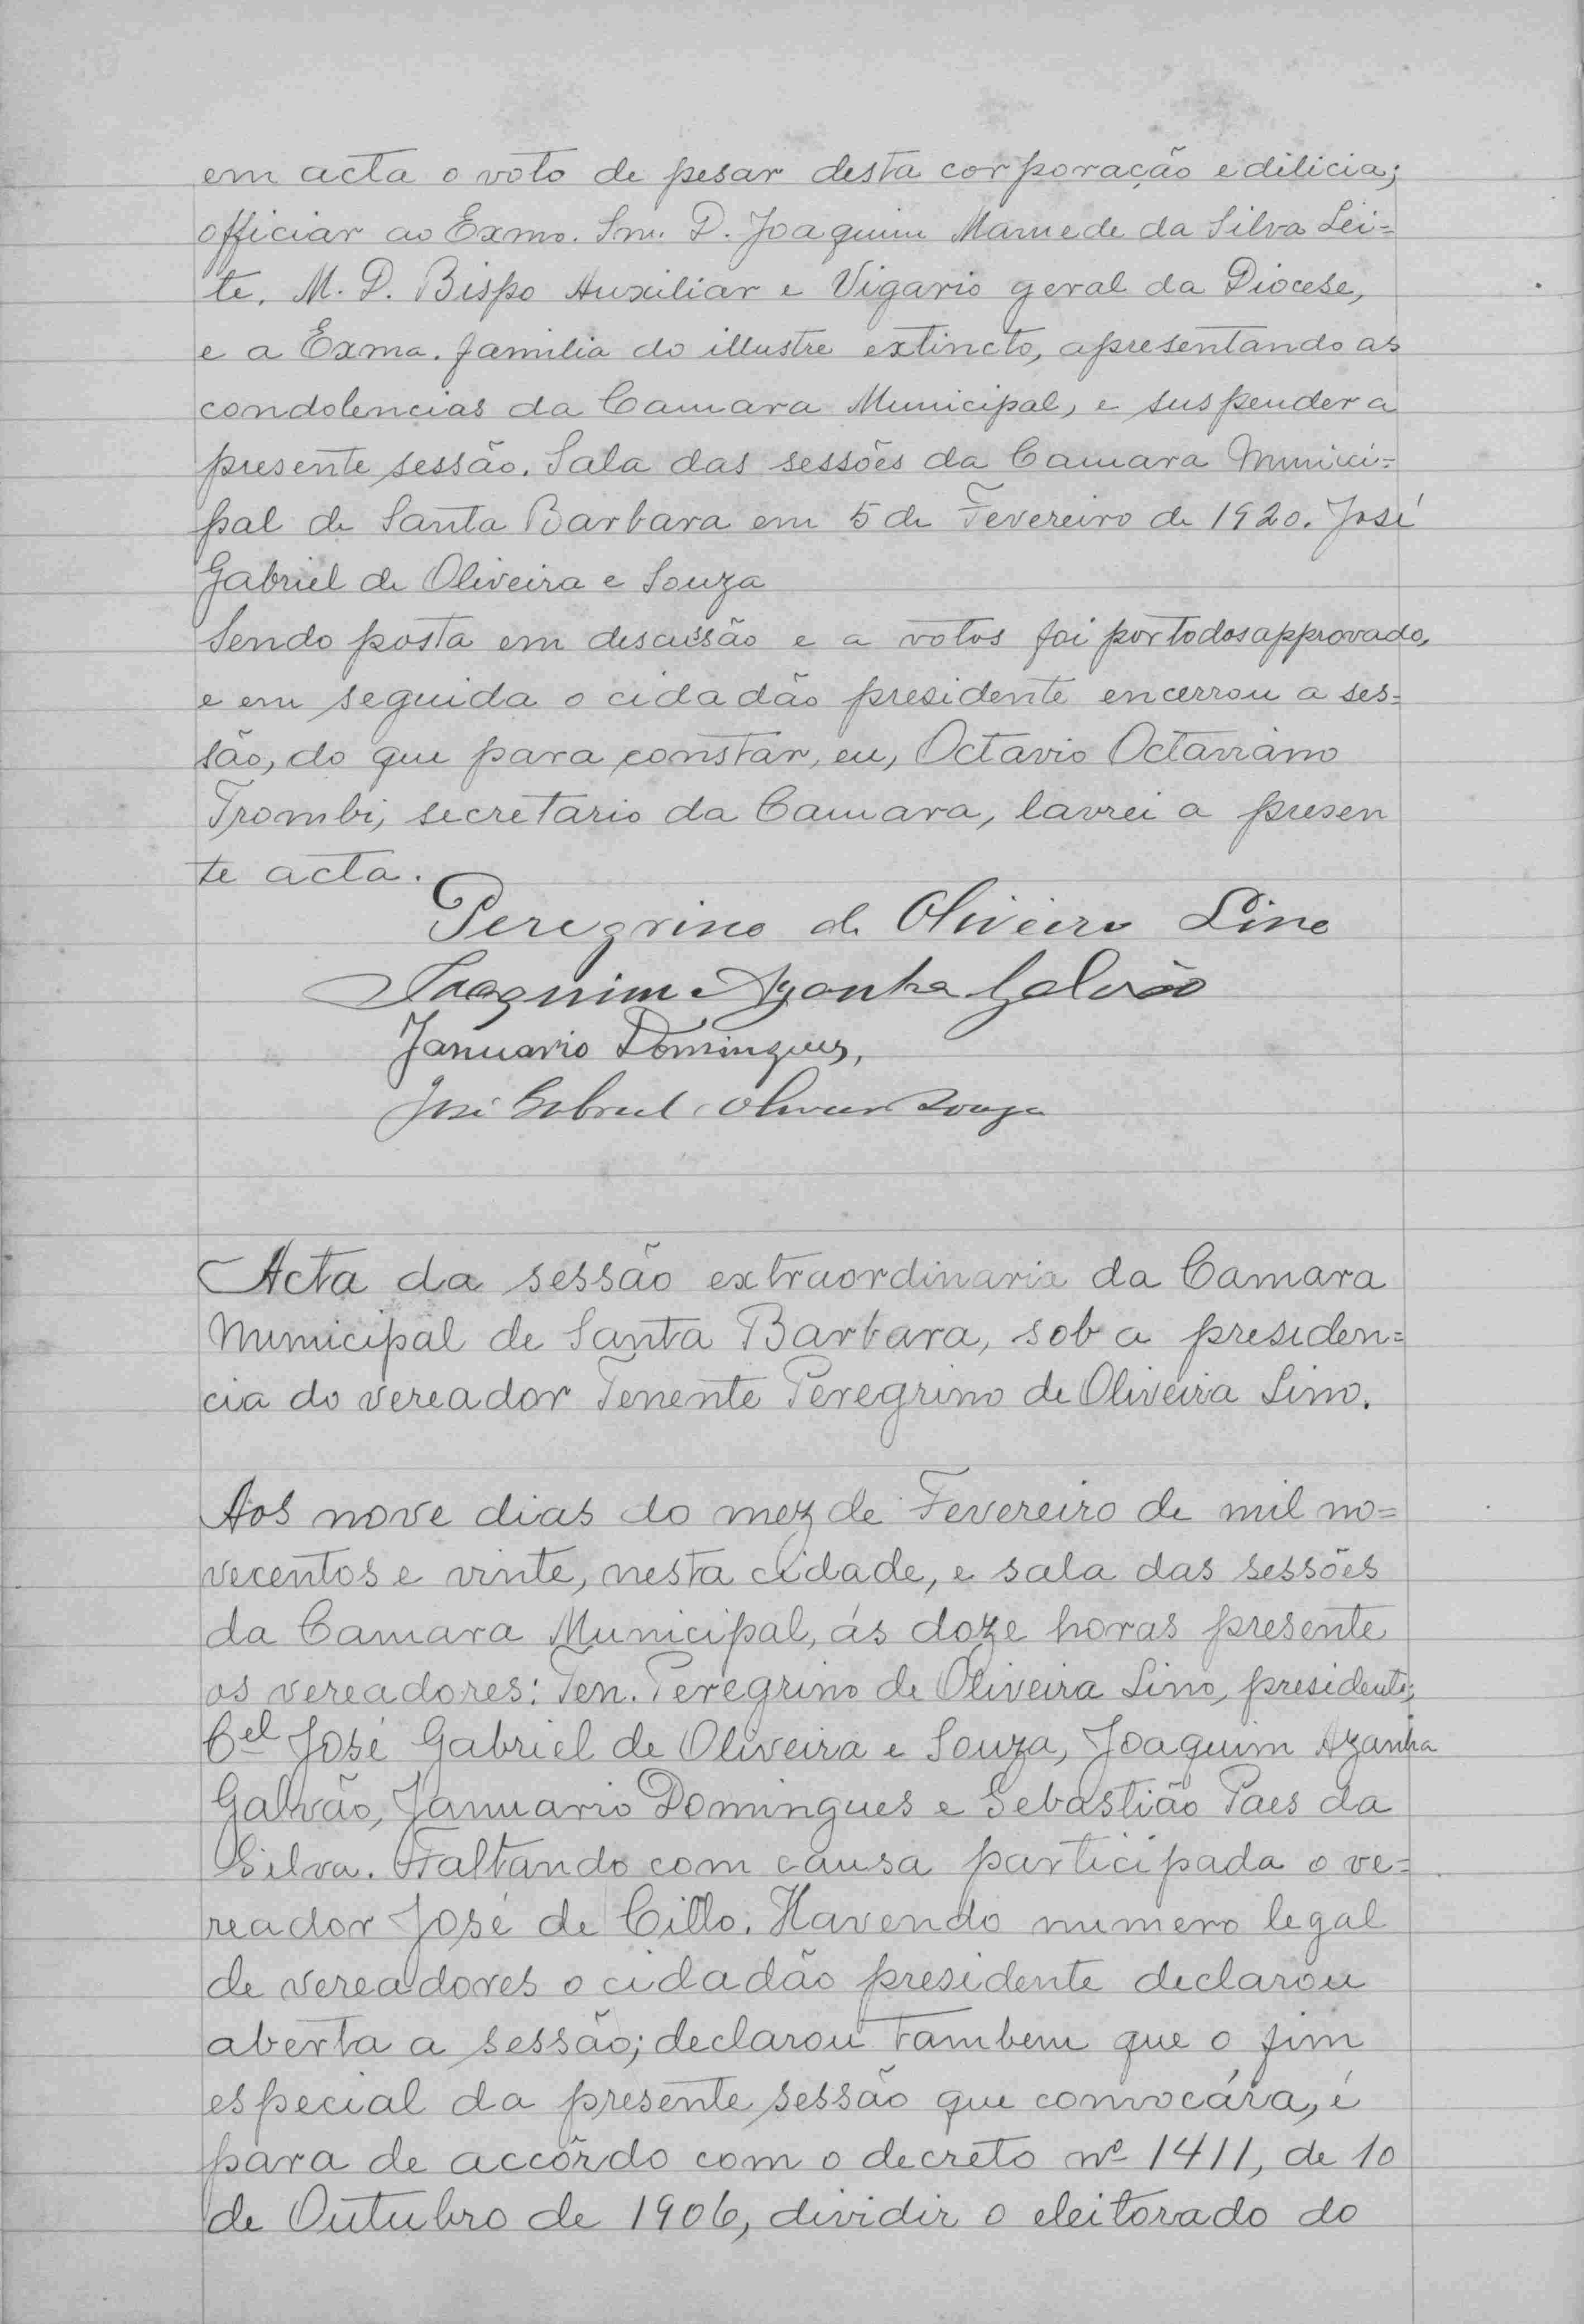 em acta o voto de pesar desta corporação edilicia;
officiar ao Exmo. Snr. D. Joaquim Mamede da Silva Lei=
te, M. D. Bispo Auxiliar e Vigario geral da Diocese,
e a Exma. familia do illustre extincto, apresentando as
condolencias da Camara Municipal, e suspender a
presente sessão. Sala das sessões da Camara Munici=
pal de Santa Barbara em 5 de Fevereiro de 1920. José
Gabriel de Oliveira e Souza
Sendo posta em discussão e a votos foi por todos approvado,
e em seguida o cidadão presidente encerrou a ses=
são, do que para constar, eu, Octavio Octaviano
Trombi, secretario da Camara, lavrei a presen
te acta.
Peregrino de Oliveira Lino
Joaquim Azanha Galvão
Januario Domingues,
José Gabriel Oliveira Souza
Acta da sessão extraordinaria da Camara
Municipal de Santa Barbara, sob a presiden=
cia do vereador Tenente Peregrino de Oliveira Lino.
Aos nove dias do mez de Fevereiro de mil no=
vecentos e vinte, nesta cidade, e sala das sessões
da Camara Municipal, ás doze horas presente
os vereadores: Ten. Peregrino de Oliveira Lino, presidente;
Cel José Gabriel de Oliveira e Souza, Joaquim Azanha
Galvão, Januario Domingues e Sebastião Paes da
Silva. Faltando com causa participada o ve=
reador José de Cillo. Havendo numero legal
de vereadores o cidadão presidente declarou
aberta a sessão; declarou tambem que o fim
especial da presente sessão que convocára, é
para de accôrdo com o decreto nº 1411, de 10
de Outubro de 1906, dividir o eleitorado do